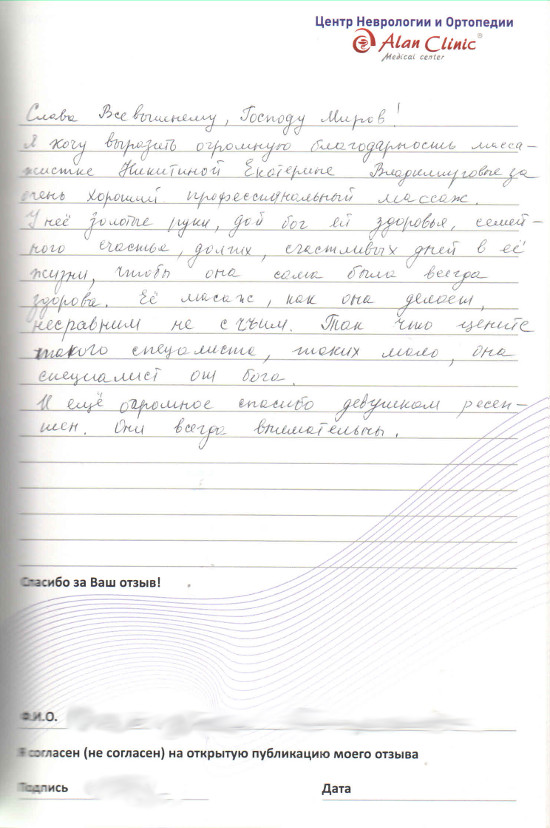 Центр Неврологии и Ортопедии
Alan Clinic®
Medical center
Слава Всевышнему, Господу Миров!
Я хочу выразить огромную благодарность масса-
жистке Никитиной Екатерине Владимировне за
очень хороший профессиональный массаж.
У неё золотые руки, дой бог ей здоровья, семей-
ного счастья, долгих, счастливых дней в её
жизни, чтобы она сама была всегда
здорова. Её масаж, как она делает,
несравним не с чьим. Так что цените
такого спецалиста, таких мало, она
специалист от бога.
И ещё огромное спасибо девушкам ресеп-
шен. Они всегда внемательны.
Спасибо за Ваш отзыв!
Ф.И.О.
Я согласен (не согласен) на открытую публикацию моего отзыва
Подпись Дата